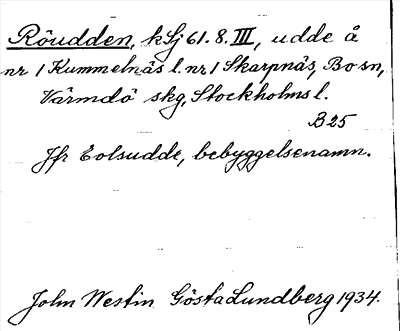 Röudden, kSj 61.8.III, udde å
nr 1 Kummelnäs l. nr 1 Skarpnäs, Bo sn,
Värmdö skg, Stockholms l.
B25
Jfr Eolsudde, bebyggelsenamn.
John Westin Gösta Lundberg 1934.